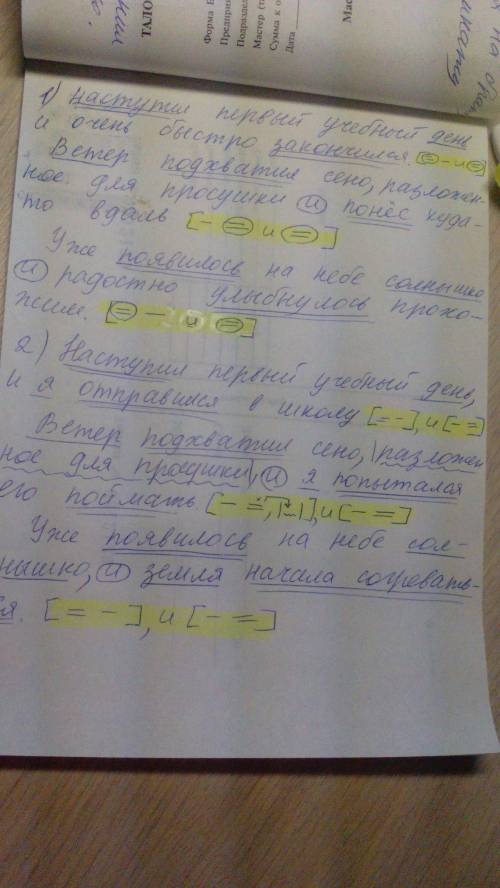 на бран
кшш
ТАЛО
Форма
Предпри
Подраздел
Мастер (п
Сумма к о
Дата
Мас
1) Наступил первый учебный день
и очень быстро закончился. [= – и =]
Ветер подхватил сено, разложен-
ное для просушки и понёс куда-
то вдаль [- = и =]
Уже появилось на небе солнышко
и радостно улыбнулось прохо-
жим. [= – и =]
2) Наступил первый учебный день,
и я отправился в школу [= -], и [- =]
Ветер подхватил сено, |разложен
ное для просушки|, и я попытался
его поймать. [- =, |~|], и [- =]
Уже появилось на небе сол-
нышко, и земля начала согревать-
ся. [= -], и [- =]